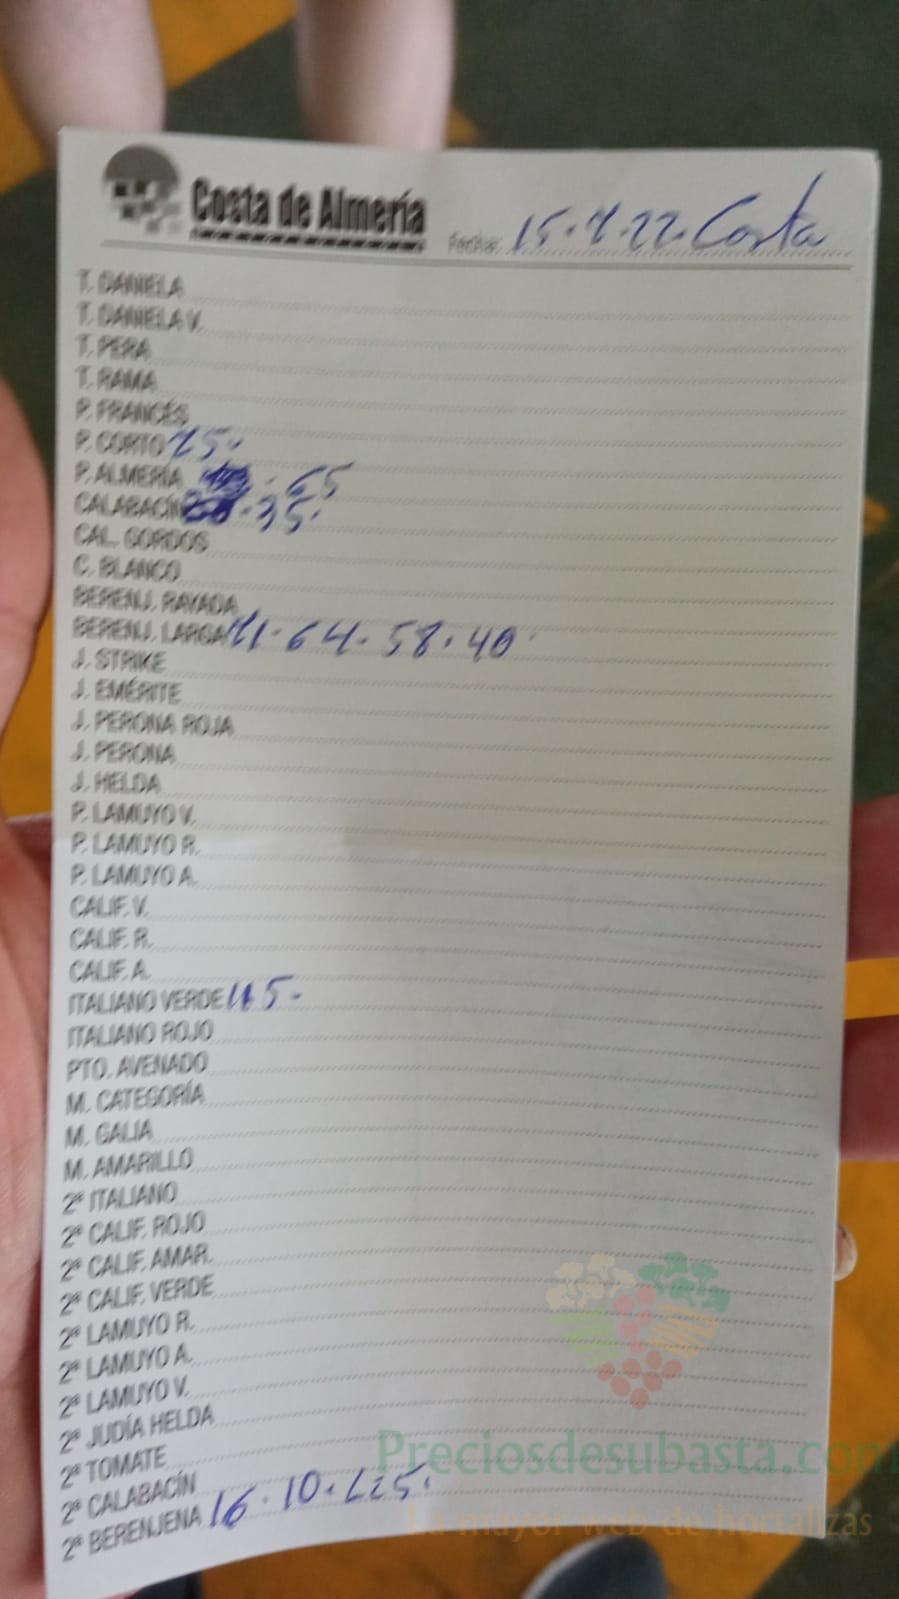 Costa de Almería
Fecha: 15.7.22. Costa
T. DANIELA
T. DANIELA V.
T. PERA
T. RAMA
P. FRANCÉS
P. CORTO 25.
P. ALMERÍA . 65
CALABACÍN . 35.
CAL. GORDOS
C. BLANCO
BERENJ. RAYADA
BERENJ. LARGA 71. 64. 58. 40
J. STRIKE
J. EMÉRITE
J. PERONA ROJA
J. PERONA
J. HELDA
P. LAMUYO V.
P. LAMUYO R.
P. LAMUYO A.
CALIF. V.
CALIF. R.
CALIF. A.
ITALIANO VERDE
ITALIANO ROJO
PTO. AVENADO
M. CATEGORÍA
M. GALIA
M. AMARILLO
2ª ITALIANO
2ª CALIF. ROJO
2ª CALIF. AMAR.
2ª CALIF. VERDE
2ª LAMUYO R.
2ª LAMUYO A.
2ª LAMUYO V.
2ª JUDÍA HELDA
2ª TOMATE
2ª CALABACÍN
2ª BERENJENA 16. 10.
Preciosdesubasta.com
La mayor web de hortalizas